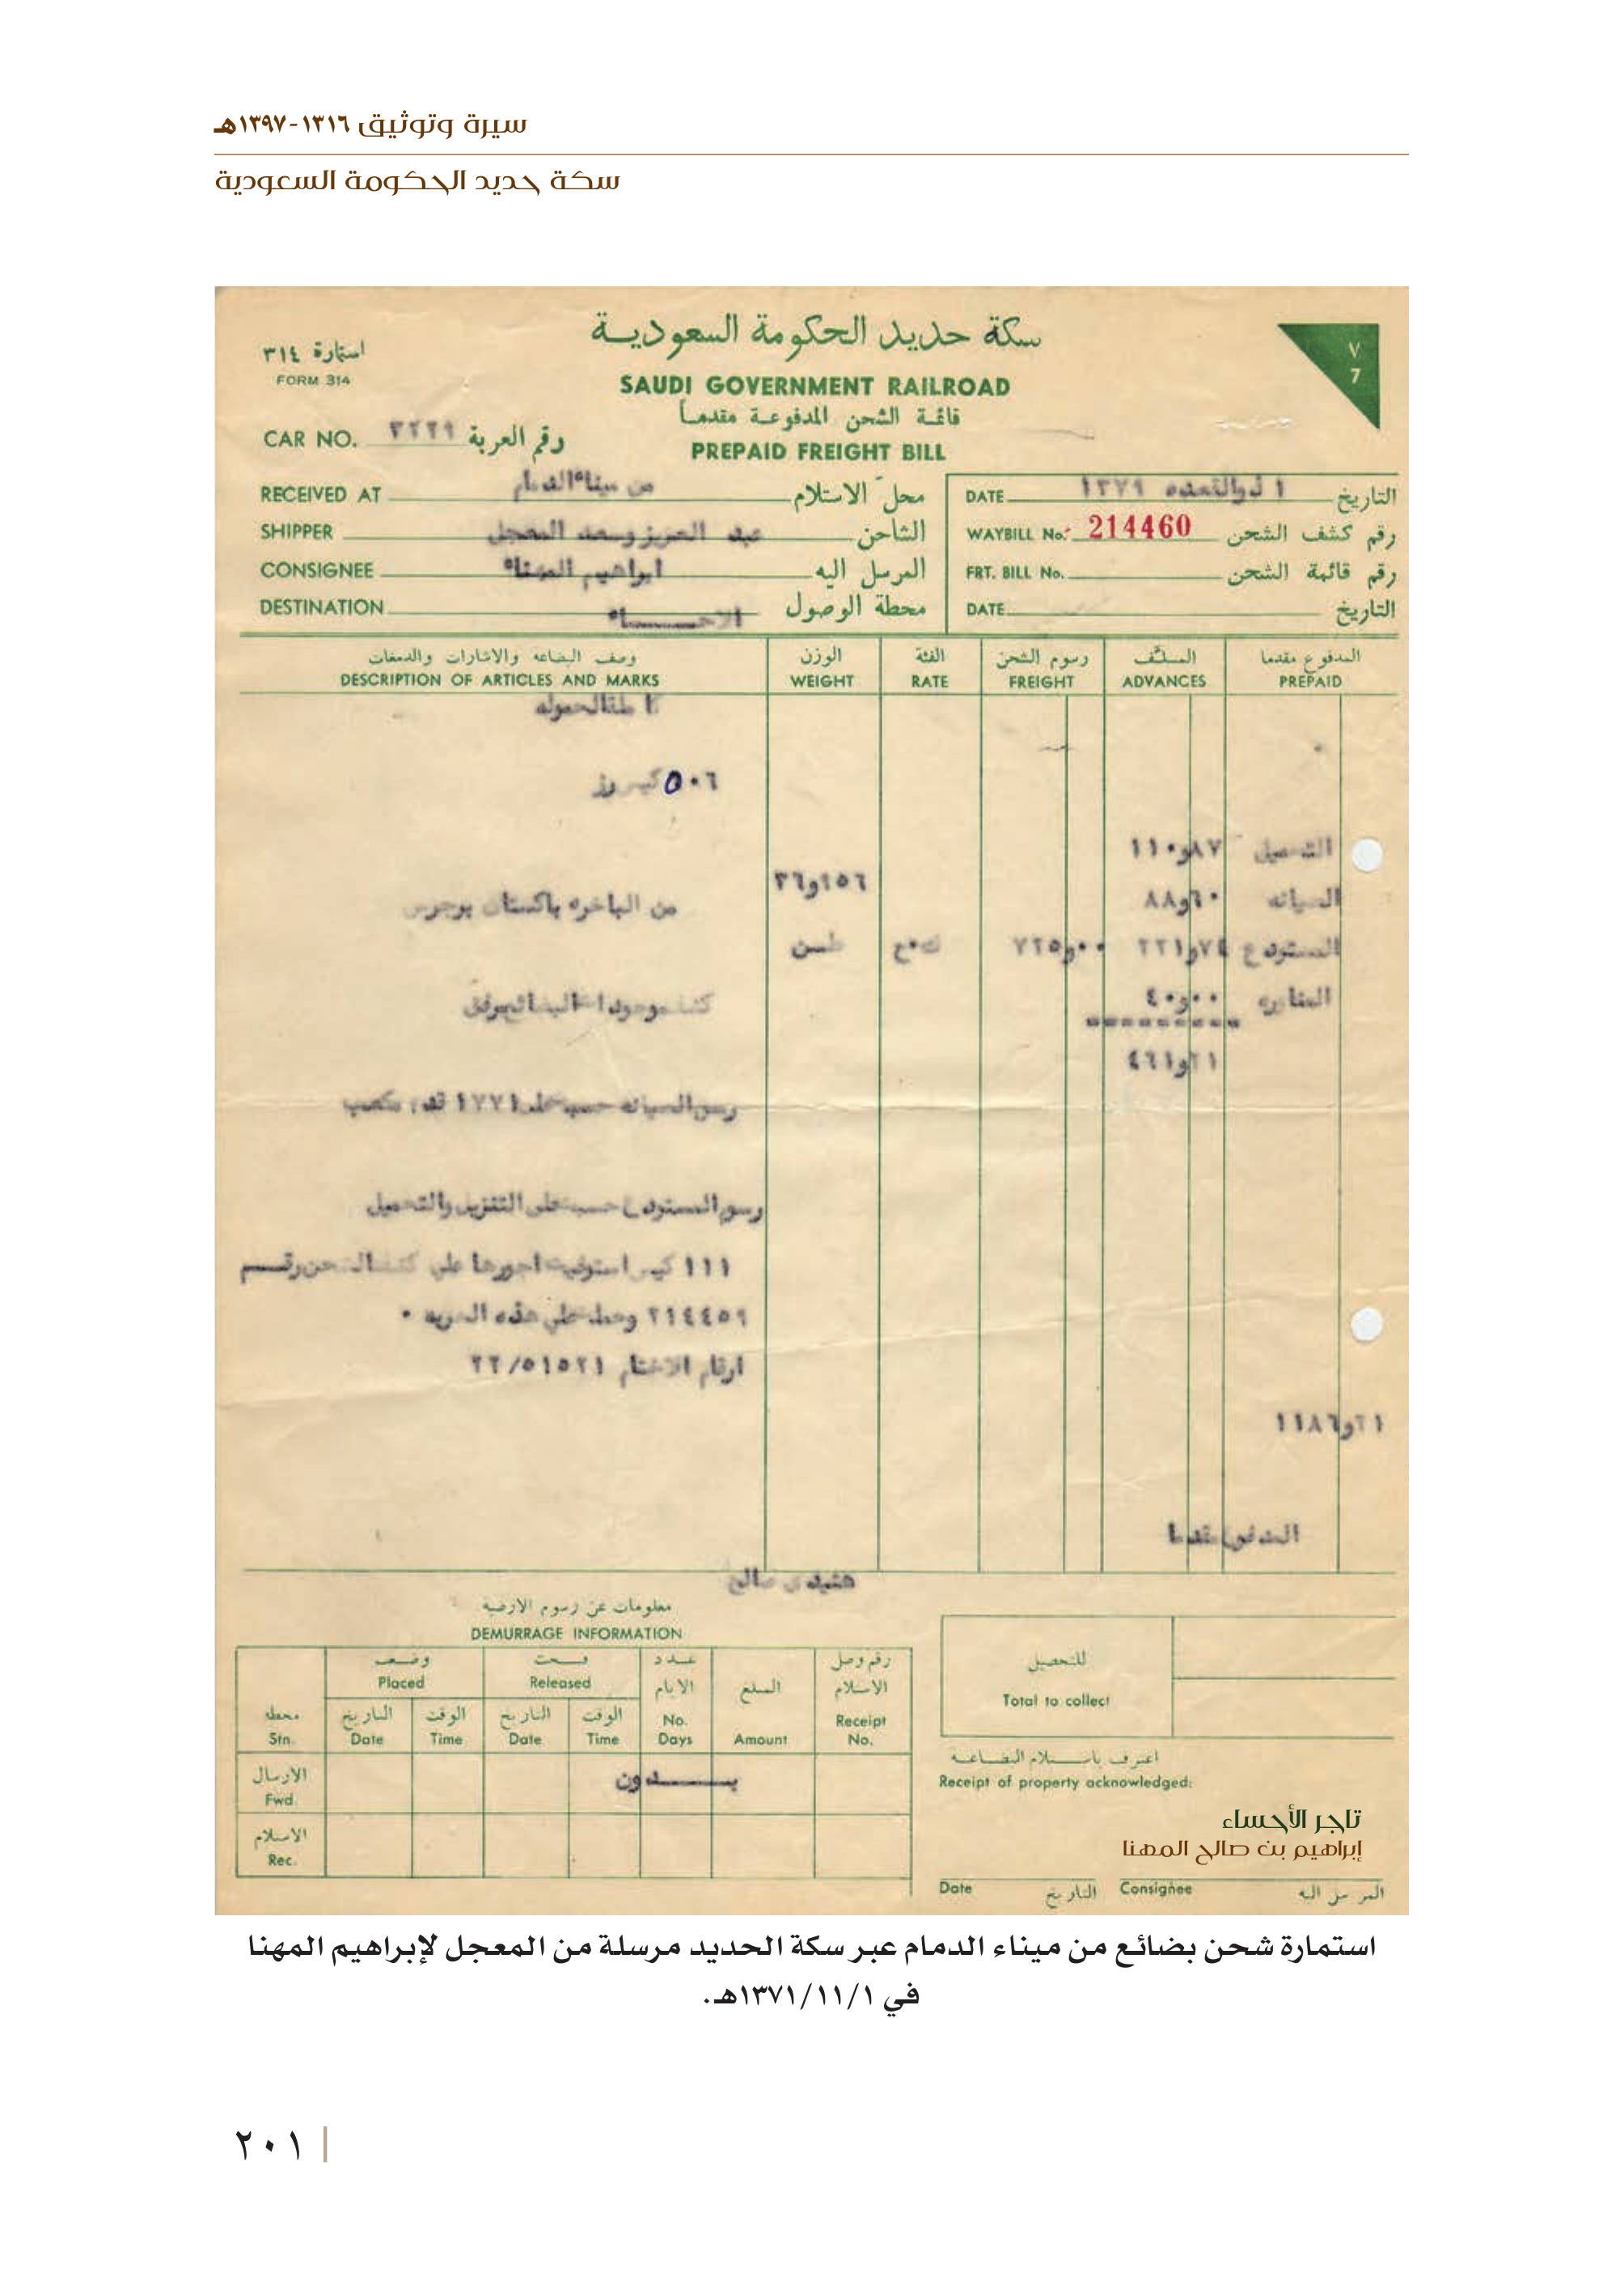 سيرة وتوثيق ١٣١٦-١٣٩٧هـ
سكة حديد الحكومة السعودية
استمارة ٣١٤
FORM 314
سكة حديد الحكومة السعودية
SAUDI GOVERNMENT RAILROAD
قائمة الشحن المدفوعة مقدماً
PREPAID FREIGHT BILL
٧
7
CAR NO. رقم العربة
RECEIVED AT من ميناء الدمام محل الاستلام
SHIPPER عبد العزيز وسعد المعجل الشاحن
CONSIGNEE ابراهيم المهناء المرسل اليه
DESTINATION الاحساء محطة الوصول
DATE ١ ذوالقعده ١٣٧٩ التاريخ
WAYBILL No. 214460 رقم كشف الشحن
FRT. BILL No. رقم قائمة الشحن
DATE التاريخ
وصف البضاعه والاشارات والدمغات
DESCRIPTION OF ARTICLES AND MARKS
الوزن
WEIGHT
الفئة
RATE
رسوم الشحن
FREIGHT
السلف
ADVANCES
المدفوع مقدما
PREPAID
٥٠٦
التحميل ٨٧و١١٠
٣٦و١٥٦
من الباخره باكستان
الصيانه ٦٠و٨٨
طن
٠٠و٧٢٥
المستودع ٧٤و٢٢١
المناوره ٠٠و٤٠
٢١و٤٦١
رسم المستودع حسب على التنزيل والتحميل
١١١ كيس استوفيت اجورها على كشف الشحن رقم
٢١٤٤٥٩ وحط على هذه العربه
ارقام الاختام ٢٢/٥١٥٢١
٢١و١١٨٦
المدفوع مقدما
معلومات عن رسوم الارضية
DEMURRAGE INFORMATION
محطة
Stn.
وضعت
Placed
التاريخ
Date
الوقت
Time
Released
التاريخ
Date
الوقت
Time
عدد الايام
No. Days
المبلغ
Amount
رقم وصل الاستلام
Receipt No.
الارسال
Fwd.
بــدون
الاستلام
Rec.
للتحصيل
Total to collect
اعترف باستلام البضاعة
Receipt of property acknowledged:
تاجر الأحساء
إبراهيم بن صالح المهنا
Date التاريخ Consignee المرسل اليه
استمارة شحن بضائع من ميناء الدمام عبر سكة الحديد مرسلة من المعجل لإبراهيم المهنا
في ١٣٧١/١١/١هـ.
٢٠١